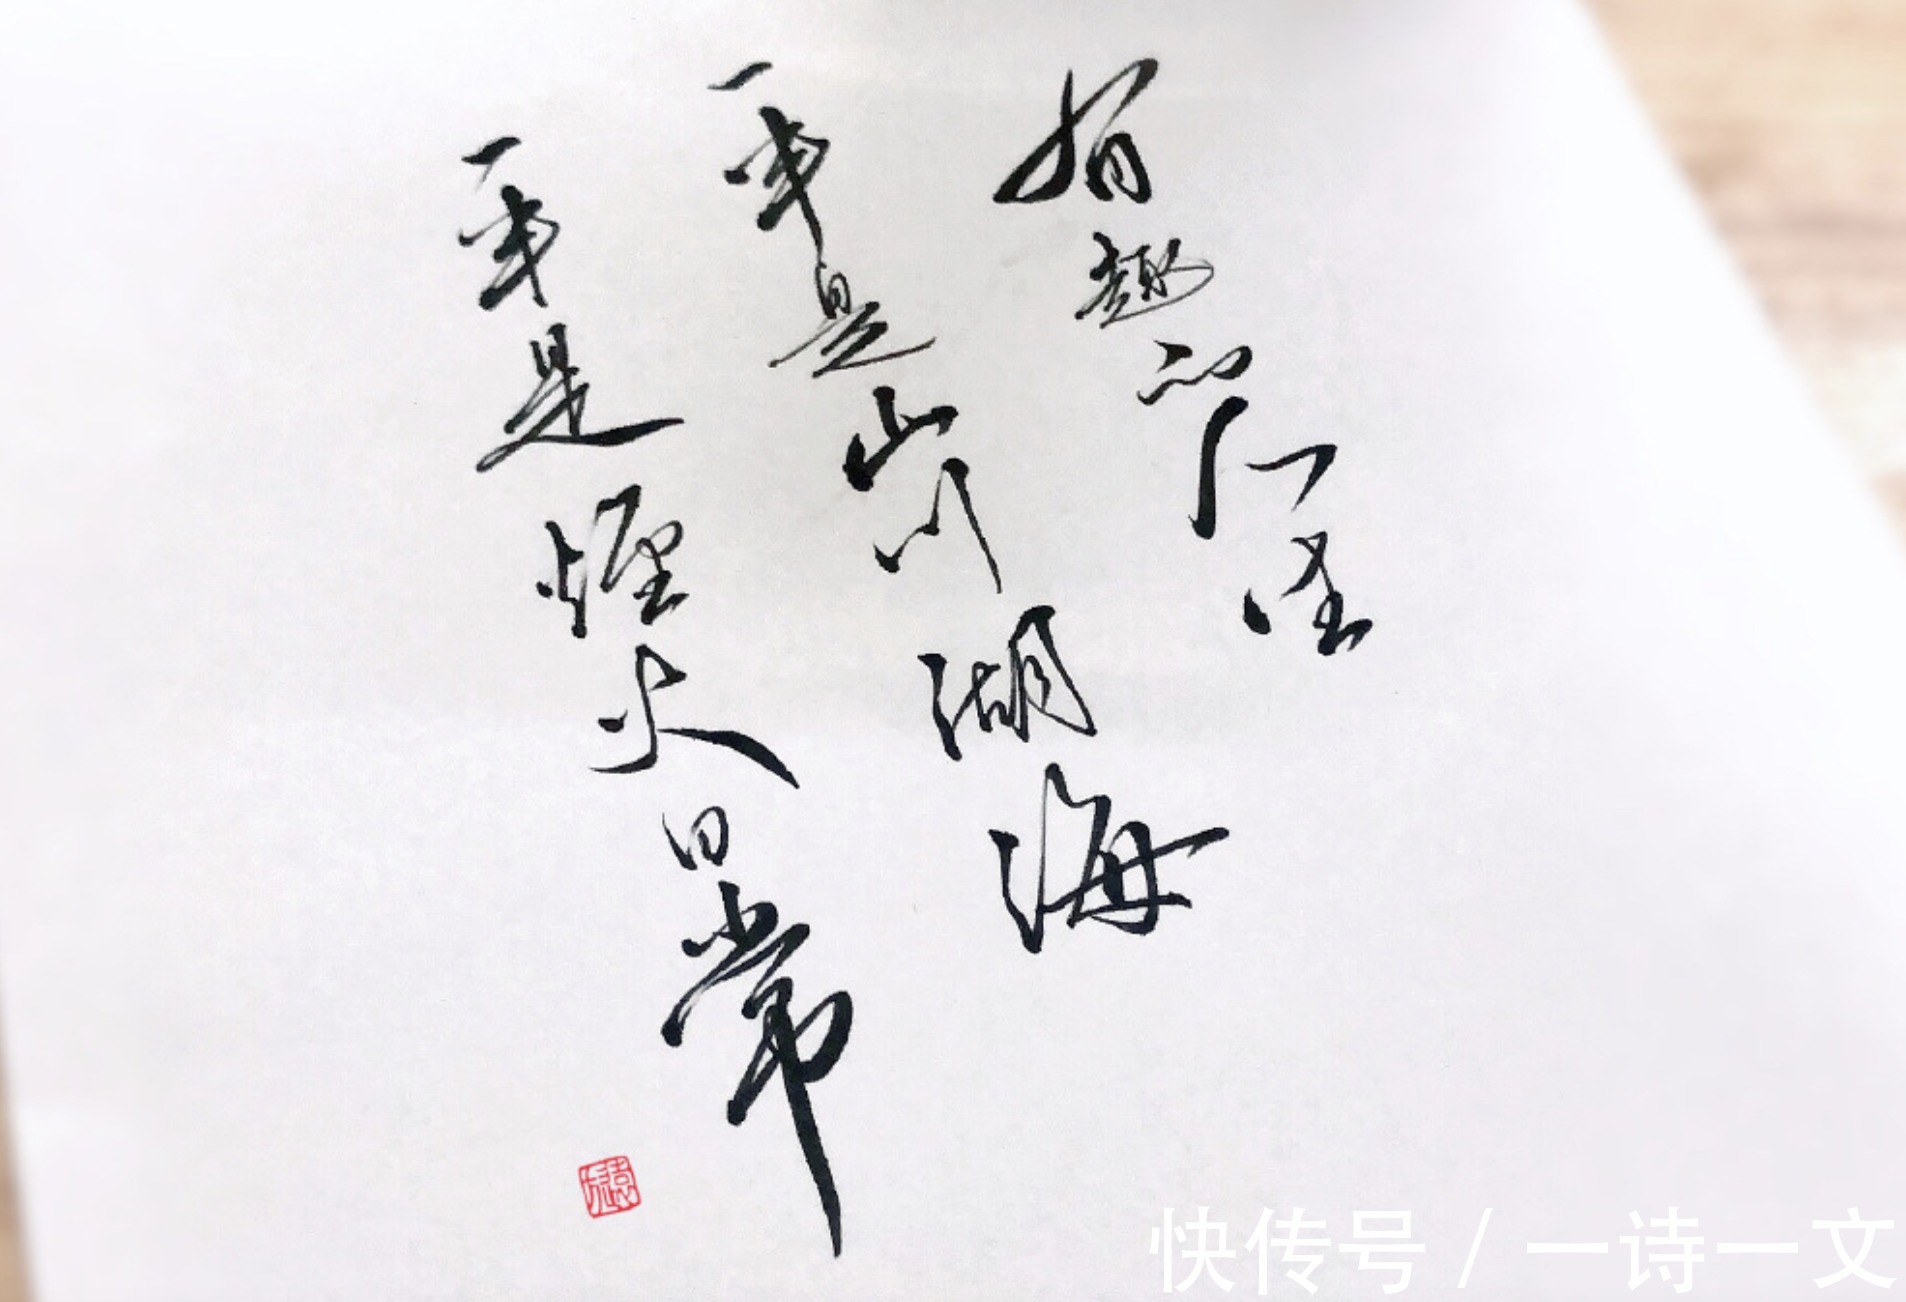 有趣的人生
一半是山川湖海
一半是煙火日常
快传号 / 一诗一文